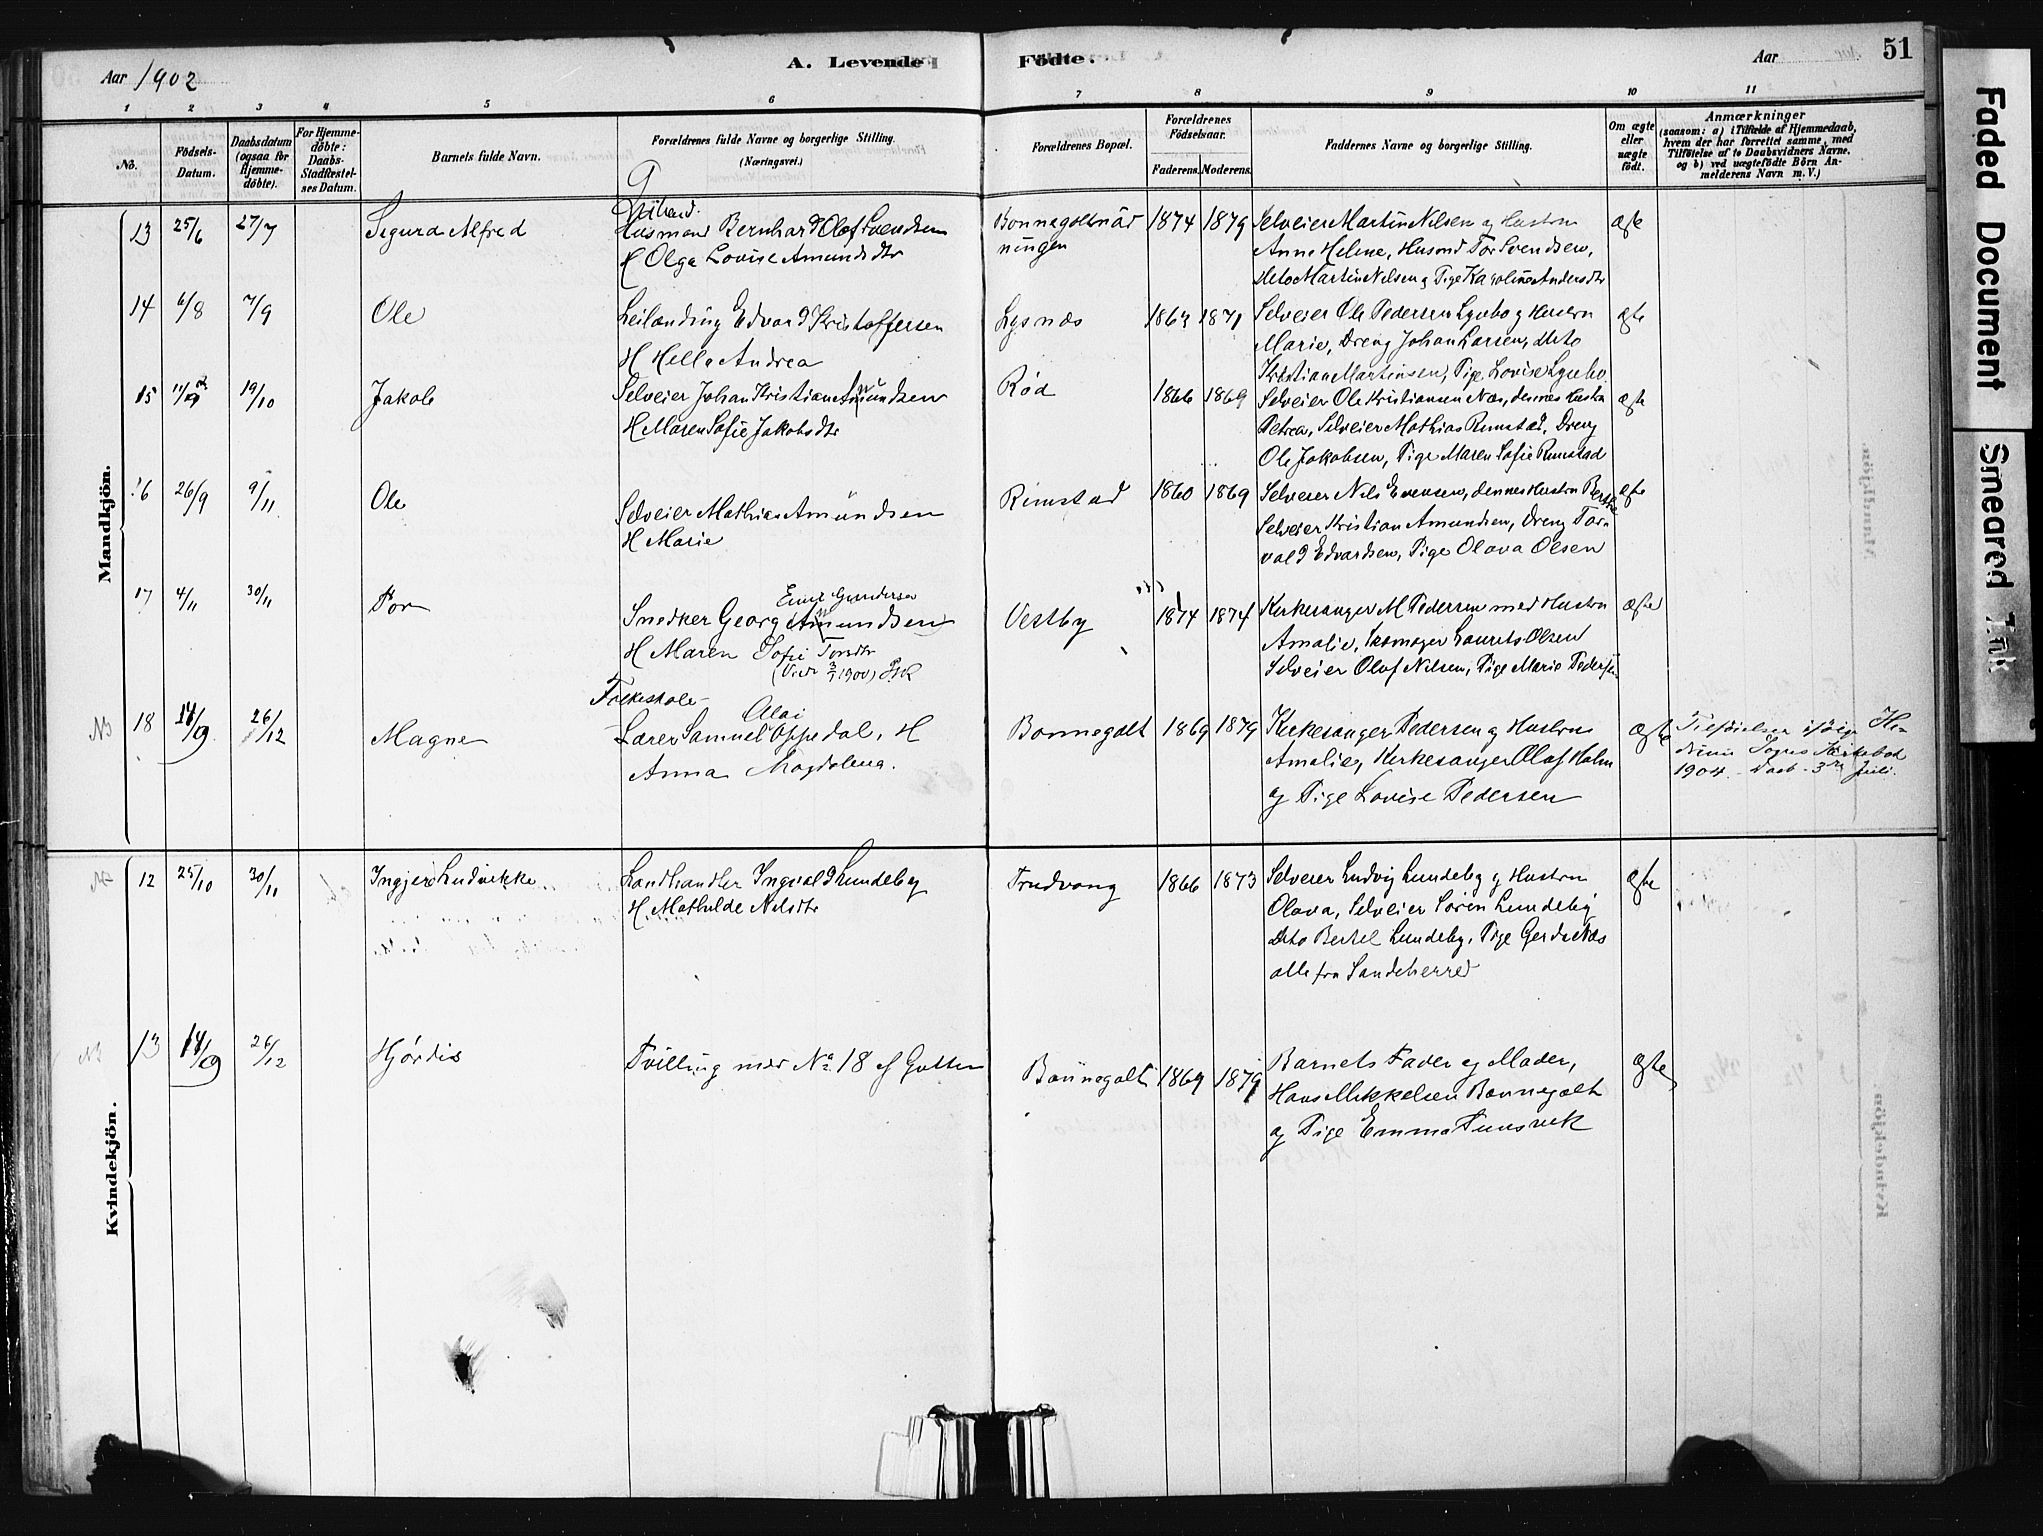 Aar 1902
A. Levende
Födte.
Aar
51
1 2 3 4 5 6 7 8 9 10 11
No.
Födsels-Datum.
Daabsdatum (ogsaa för Hjemme-döbte).
For Hjemme-döbte: Daabs-Stadfæstel-ses Datum.
Barnets fulde Navn.
Forældrenes fulde Navne og borgerlige Stilling.
(Næringsvei.)
Forældrenes Bopæl.
Forældrenes Födselsaar.
Faderens. Moderens.
Faddernes Navne og borgerlige Stilling.
Om ægte eller uægte födt.
Anmærkninger
(saasom: a) i Tilfælde af Hjemmedaab,
hvem der har forrettet samme, med
Tilföielse af to Daabsvidners Navne,
og b) ved uægtefödte Börn An-
melderens Navn m. V.)
Mandkjön.
13 25/6 27/7 Sigurd Alfred
Husmand Bernhard Olaf Svendsen
H Olga Lovise Amundsdtr
1874 1879
Selveier Martin Nilsen og Hustru
Anne Helene, Husmd Tor Svendsen,
dito Martin Nilsen og Pige Karoline Andersdtr
ægte
14 6/8 7/9 Ole
Leilænding Edvard Kristoffersen
H Hella Andrea
Lysnæs
1871
Selveier Ole Pedersen Lyubo og Hustru
Marie, Dreng Johan Larsen, dito
Kristian Martinsen, Pige Lovise Lyubo.
ægte
15 19/10 Jakob
Selveier Johan Kristian Amundsen
H Maren Sofie Jakobsdtr
Rød
1866 1869
Selveier Ole Kristiansen Næs, dennes Hustru
Petrea, Selveier Mathias Rimstad, Dreng
Ole Jakobsen, Pige Maren Sofie Rimstad
ægte
16 26/9 9/11 Ole
Selveier Mathias Amundsen
H Marie
Rimstad
1860 1869
Selveier Nils Evensen, dennes Hustru
Selveier Kristian Amundsen, Dreng Tor-
vald Edvardsen, Pige Olava Olsen
ægte
17 4/11 30/11 Tor
Snedker Georg Amundsen
H Maren Sofie Torsdtr
Vestby
1874 1874
Kirkesanger M Pedersen med Hustru
Amalie, Skomager Laurits Olsen
Selveier Olaf Nilsen, Pige Marie Pedersen
ægte
NB 18 26/12 Magne
Folkeskole-
Lærer Samuel Olai Oppedal, H
Anna Magdalena.
Bonnegolt
1869 1879
Kirkesanger Pedersen og Hustru
Amalie, Kirkesanger Olaf Holm
og Pige Lovise Pedersen
ægte
Tilföielser ifölge He-
drum Sogns Kirkebok
1904. Daab 3die Juli.
Kvindekjön.
12 25/10 30/11 Ingjerd Ludvikke
Landhandler Ingvald Lundeby
H Mathilde Nilsdtr
Trudvang
1866 1873
Selveier Ludvig Lundeby og Hustru
Olava, Selveier Sören Lundeby
dito Bertel Lundeby, Pige Gerda Næs
alle fra Sandeherred
ægte
NB 13 26/12 Hjørdis
Tvilling med No 18 af Gutter
Bonnegolt
1869 1879
Barnets Fader og Moder,
Hans Mikkelsen Bonnegolt
og Pige Emma Tunsvik
ægte
Faded Document
Smeared Ink